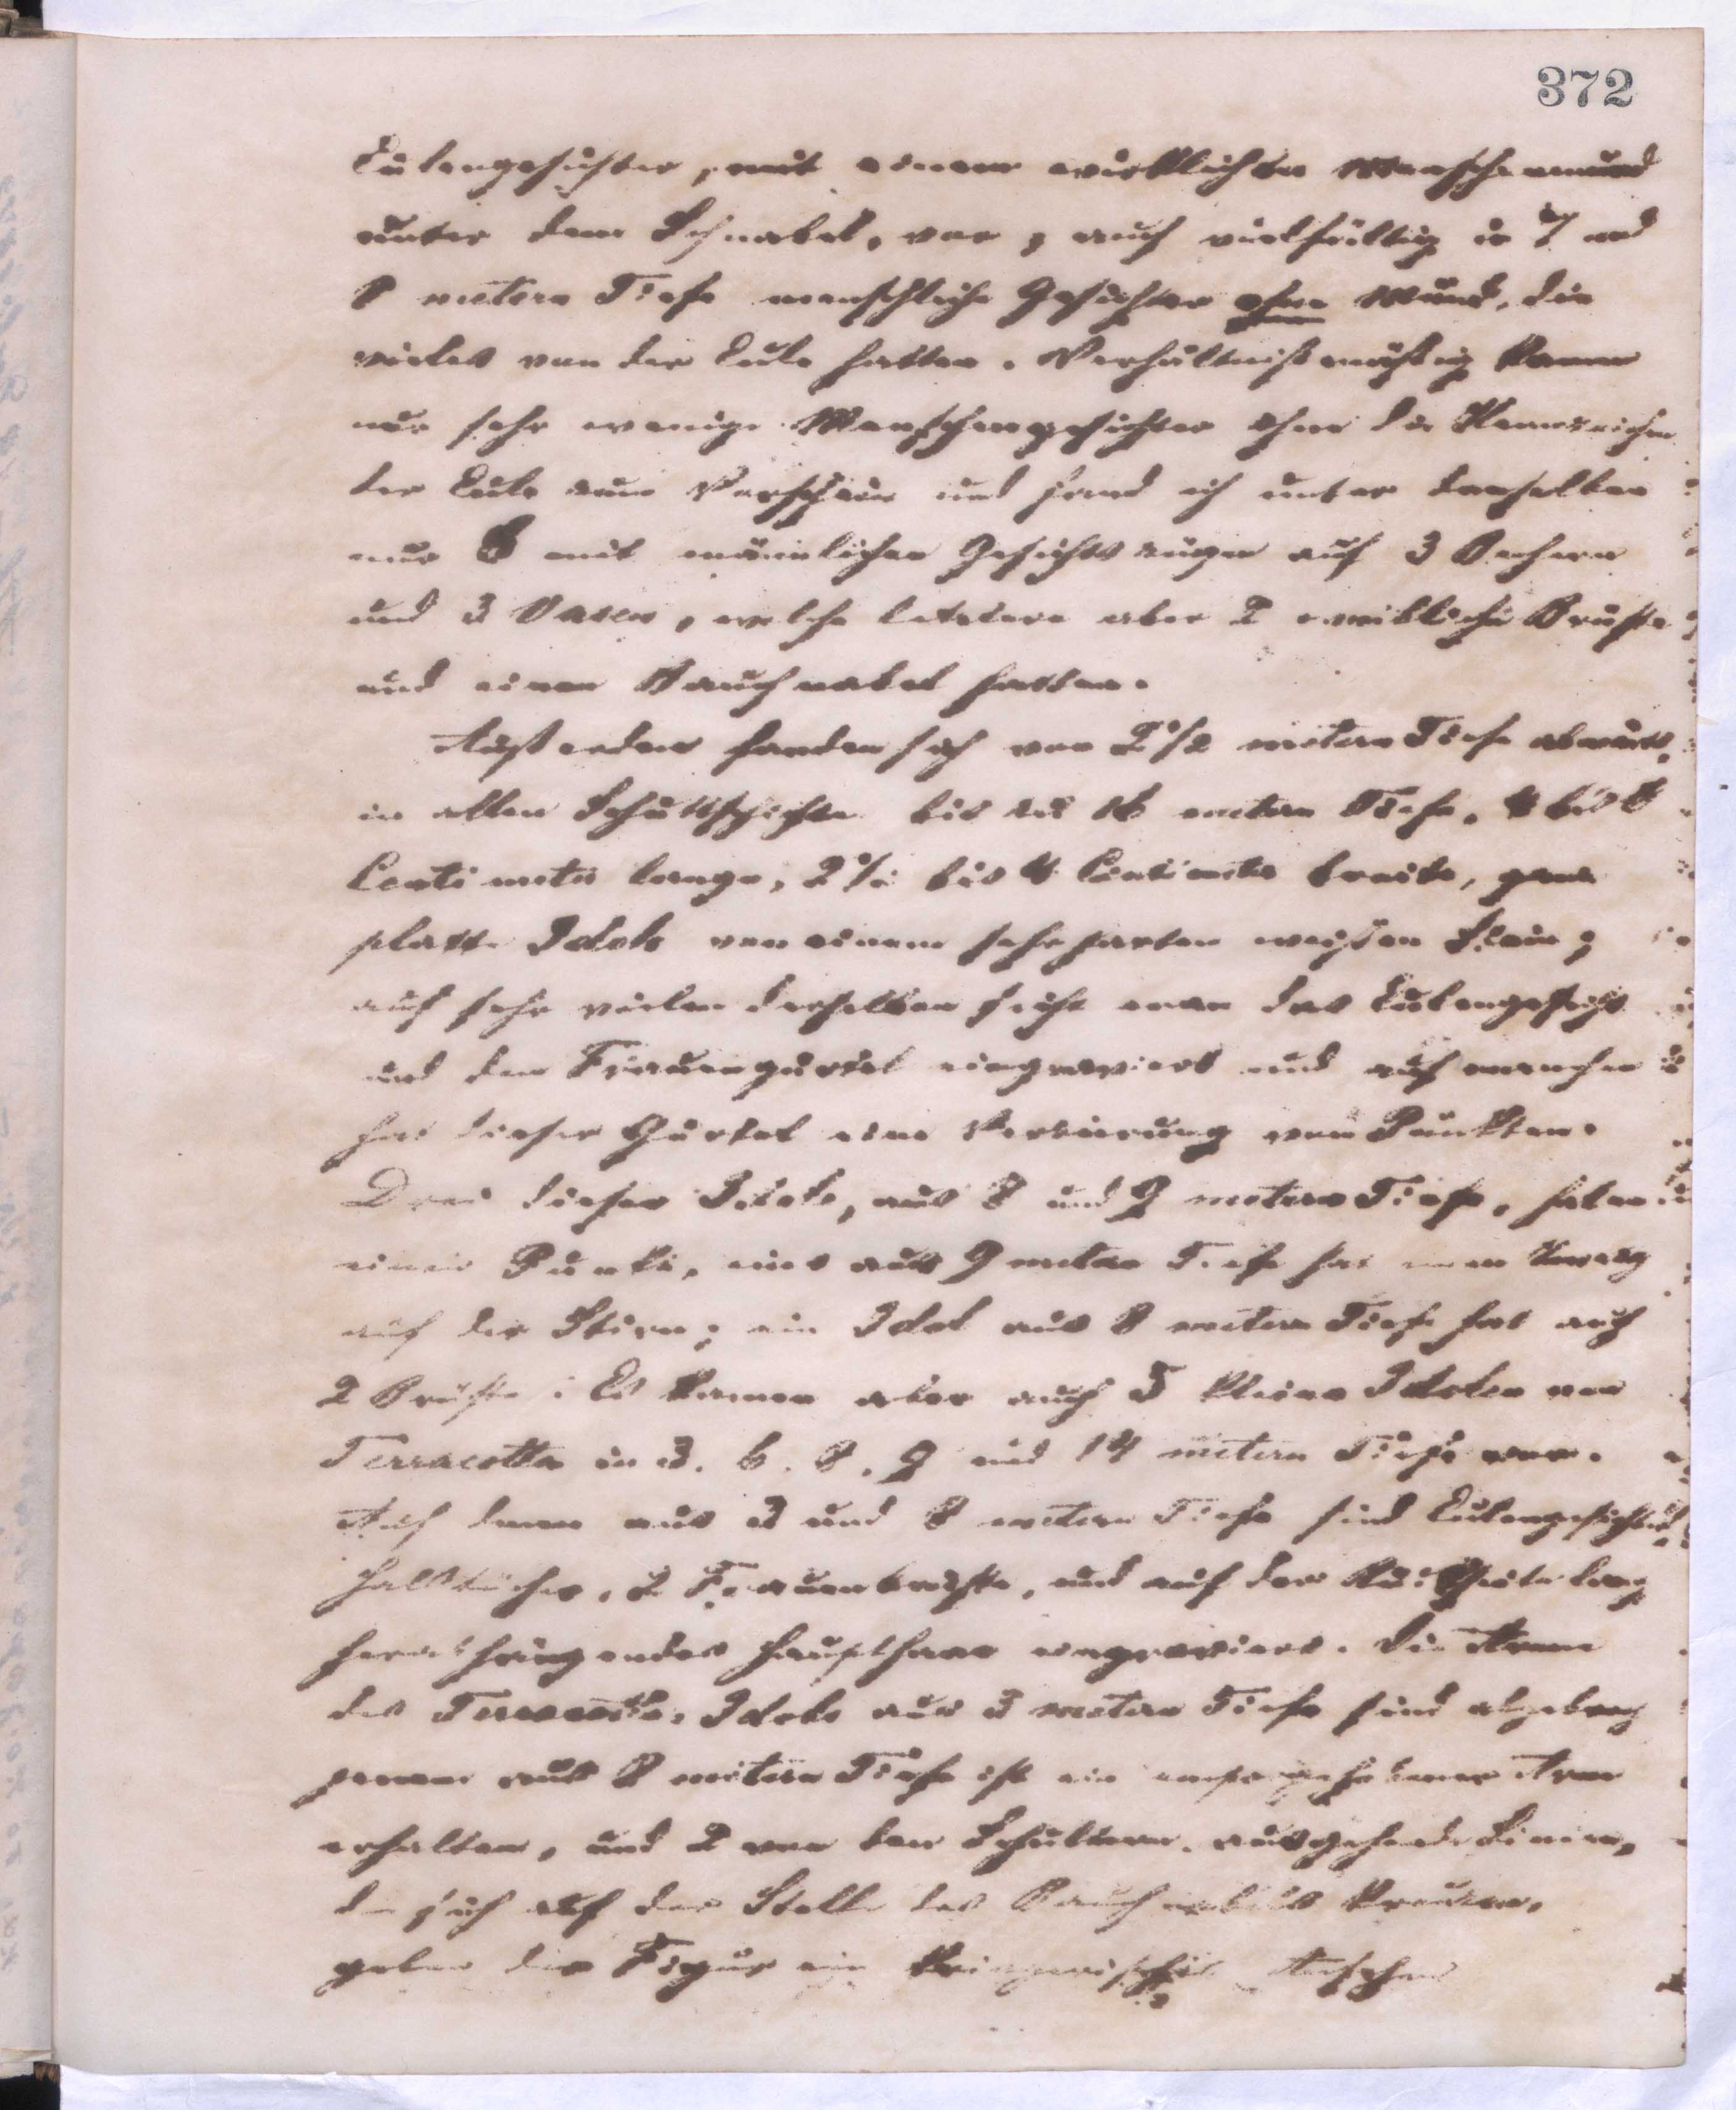 372
Eulengesichter, mit einem wirklichen Menschenmund
unter dem Schnabel, vor, auch vielfältig in 7 und
8 metern Tiefe menschliche Gesichter ohne Mund, die
vieles von der Eule hatten. Verhältnißmäßig kamen
nur sehr wenige Menschengesichter ohne die Kennzeichen
der Eule zum Vorschein und fand ich unter denselben
nur 6 mit männlichen Gesichtszügen auf 3 Bechern
und 3 Vasen, welche letztere aber 2 weibliche Brüste
und einen Bauchnabel hatten.
Außerdem fanden sich von 2½ metern Tiefe abwärts,
in allen Schuttschichten bis zu 16 metern Tiefe, 4 bis 8
Centimeter lange, 2½ bis 4 Centimeter breite, ganz
platte Idole von einem sehr harten weißen Stein;
auf sehr vielen derselben sieht man das Eulengesicht
und den Frauengürtel eingraviert und auf manchen
hat dieser Gürtel eine Verzierung von Punkten.
Drei dieser Idole, aus 8 und 9 metern Tiefe, haben
einen Punkt, eins aus 9 metern Tiefe hat einen Zweig
auf der Stirn; ein Idol aus 8 metern Tiefe hat auch
2 Brüste. Es kamen aber auch 5 kleine Idolen von
Terracotta in 3. 6. 8. 9 und 14 metern Tiefe vor.
Auf denen aus 3 und 8 metern Tiefe sind Eulengesichter,
Halstücher, 2 Frauenbrüste, und auf der Rückseite lang
herabhängendes Haupthaar eingraviert. Die Arme
des Terracotta-Idols aus 3 metern Tiefe sind abgebroch
jenem aus 8 metern Tiefe ist ein emporgehobener Arm
erhalten, und 2 von den Schultern ausgehende Linien,
die sich auf der Stelle des Bauchnabels kreuzen,
geben der Figur ein kriegerisches Ansehen